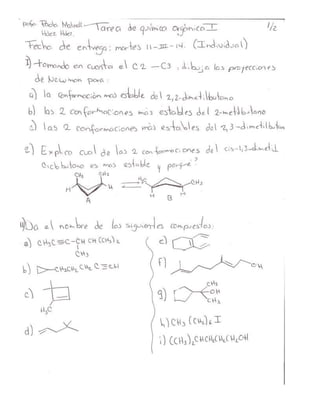 Tarea de química orgánica I 1/2
Fecho de entrega: martes 11-III-14. (Individual)
1) tomando en cuenta el C2-C3, dibuja las proyecciones
de Newman para:
a) la conformación más estable del 2,2-dimetilbutano
b) las 2 conformaciones más estables del 2-metilbutano
c) las 2 conformaciones más estables del 2,3-dimetilbutan
2) Explica cual de las 2 conformaciones del cis-1,3-dimetil
ciclobutano es más estable y porqué?
CH₃ CH₃
H H H₃C CH₃
A B
4) Da el nombre de los siguientes compuestos:
a) CH₃C≡C-CH CH(CH₃)₂
CH₃
b) CH₂CH₂CH₂C≡CH
c)
H₃C
d)
e)
f)
OH
g) CH₃
OH
CH₃
h) CH₃(CH₂)₆I
i) (CH₃)₂CHCH₂CH₂CH₂OH